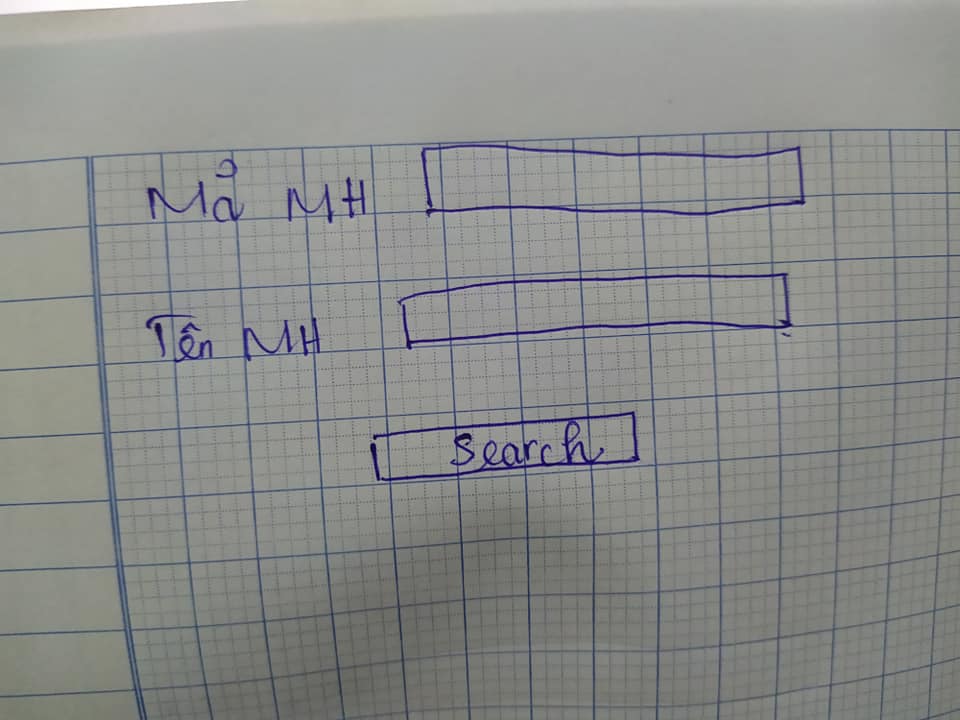 Mả MH
Tên MH
Search